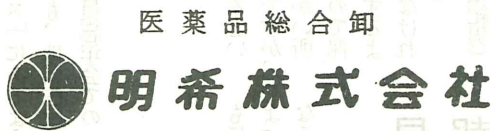 医薬品総合卸
明希株式会社